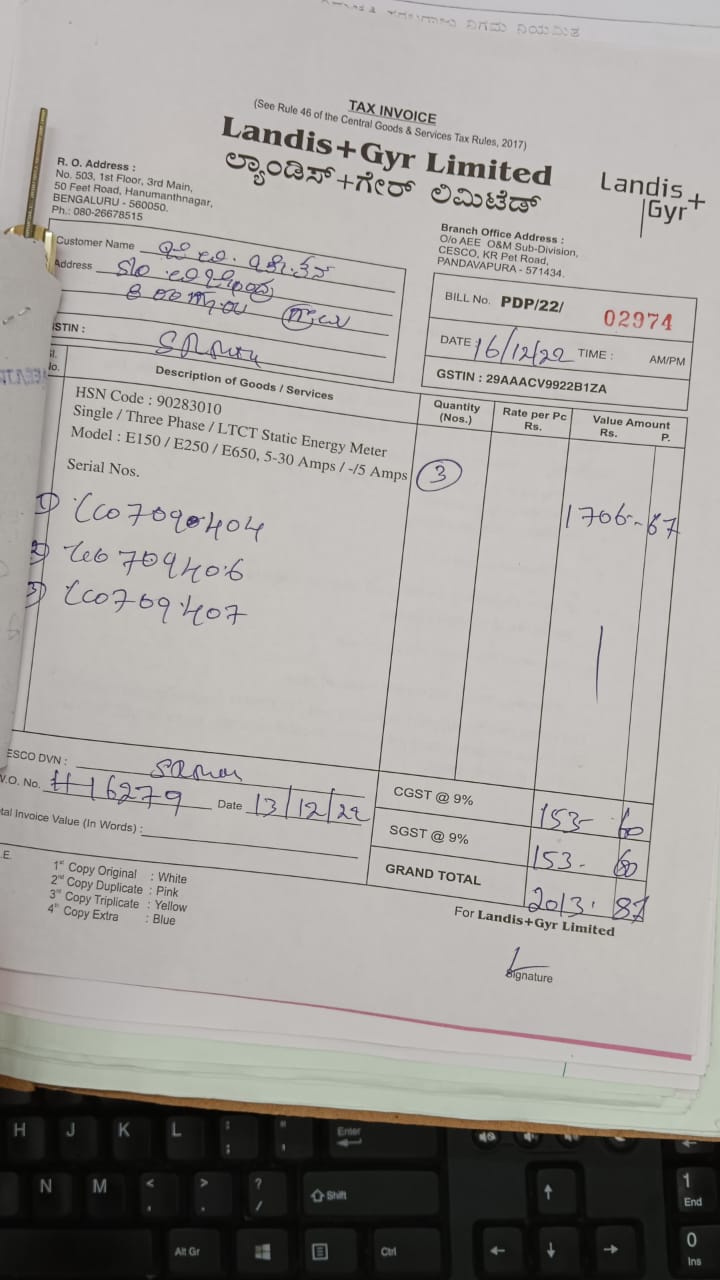 ನಿಗಮ ನಿಯಮಿತ
TAX INVOICE
(See Rule 46 of the Central Goods & Services Tax Rules, 2017)
Landis+Gyr Limited
ಲ್ಯಾಂಡಿಸ್+ಗೇರ್ ಲಿಮಿಟೆಡ್
Landis+
Gyr
R. O. Address :
No. 503, 1st Floor, 3rd Main,
50 Feet Road, Hanumanthnagar,
BENGALURU - 560050.
Ph.: 080-26678515
Branch Office Address :
O/o AEE O&M Sub-Division,
CESCO, KR Pet Road,
PANDAVAPURA - 571434.
Customer Name
Address S/o
STIN :
BILL No. PDP/22/ 02974
DATE 16/12/22 TIME : AM/PM
GSTIN : 29AAACV9922B1ZA
Description of Goods / Services
Quantity (Nos.)
Rate per Pc Rs.
Value Amount
Rs. P.
HSN Code : 90283010
Single / Three Phase / LTCT Static Energy Meter
Model : E150 / E250 / E650, 5-30 Amps / -/5 Amps
3
Serial Nos.
1706-67
1)
2)
3)
ESCO DVN :
V.O. No. 16279 Date 13/12/22
tal Invoice Value (In Words) :
CGST @ 9% 153-60
SGST @ 9% 153-60
GRAND TOTAL 2013.87
.E.
1st Copy Original : White
2nd Copy Duplicate : Pink
3rd Copy Triplicate : Yellow
4th Copy Extra : Blue
For Landis+Gyr Limited
Signature
H J K L : ; " ' Enter
N M < , > . ? / Shift
Alt Gr Ctrl
1 End
0 Ins